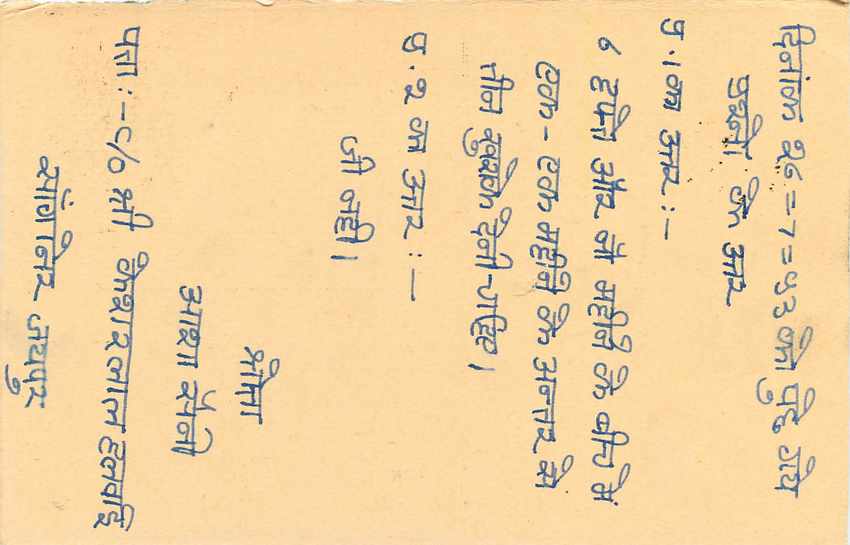 दिनांक २८=7=५३ को पुछे गये
प्रश्नो के उत्तर
प्र.1का उत्तर:-
6 हफ्ते और नौ महीने के बीच में
एक-एक महीने के अन्तर से
तीन खुराके देनी चाहिए।
प्र.२ का उत्तर:-
जी नही।
श्रोता
आशा सैनी
पता:-C/o श्री केशरलाल हलवाई
सांगानेर जयपुर